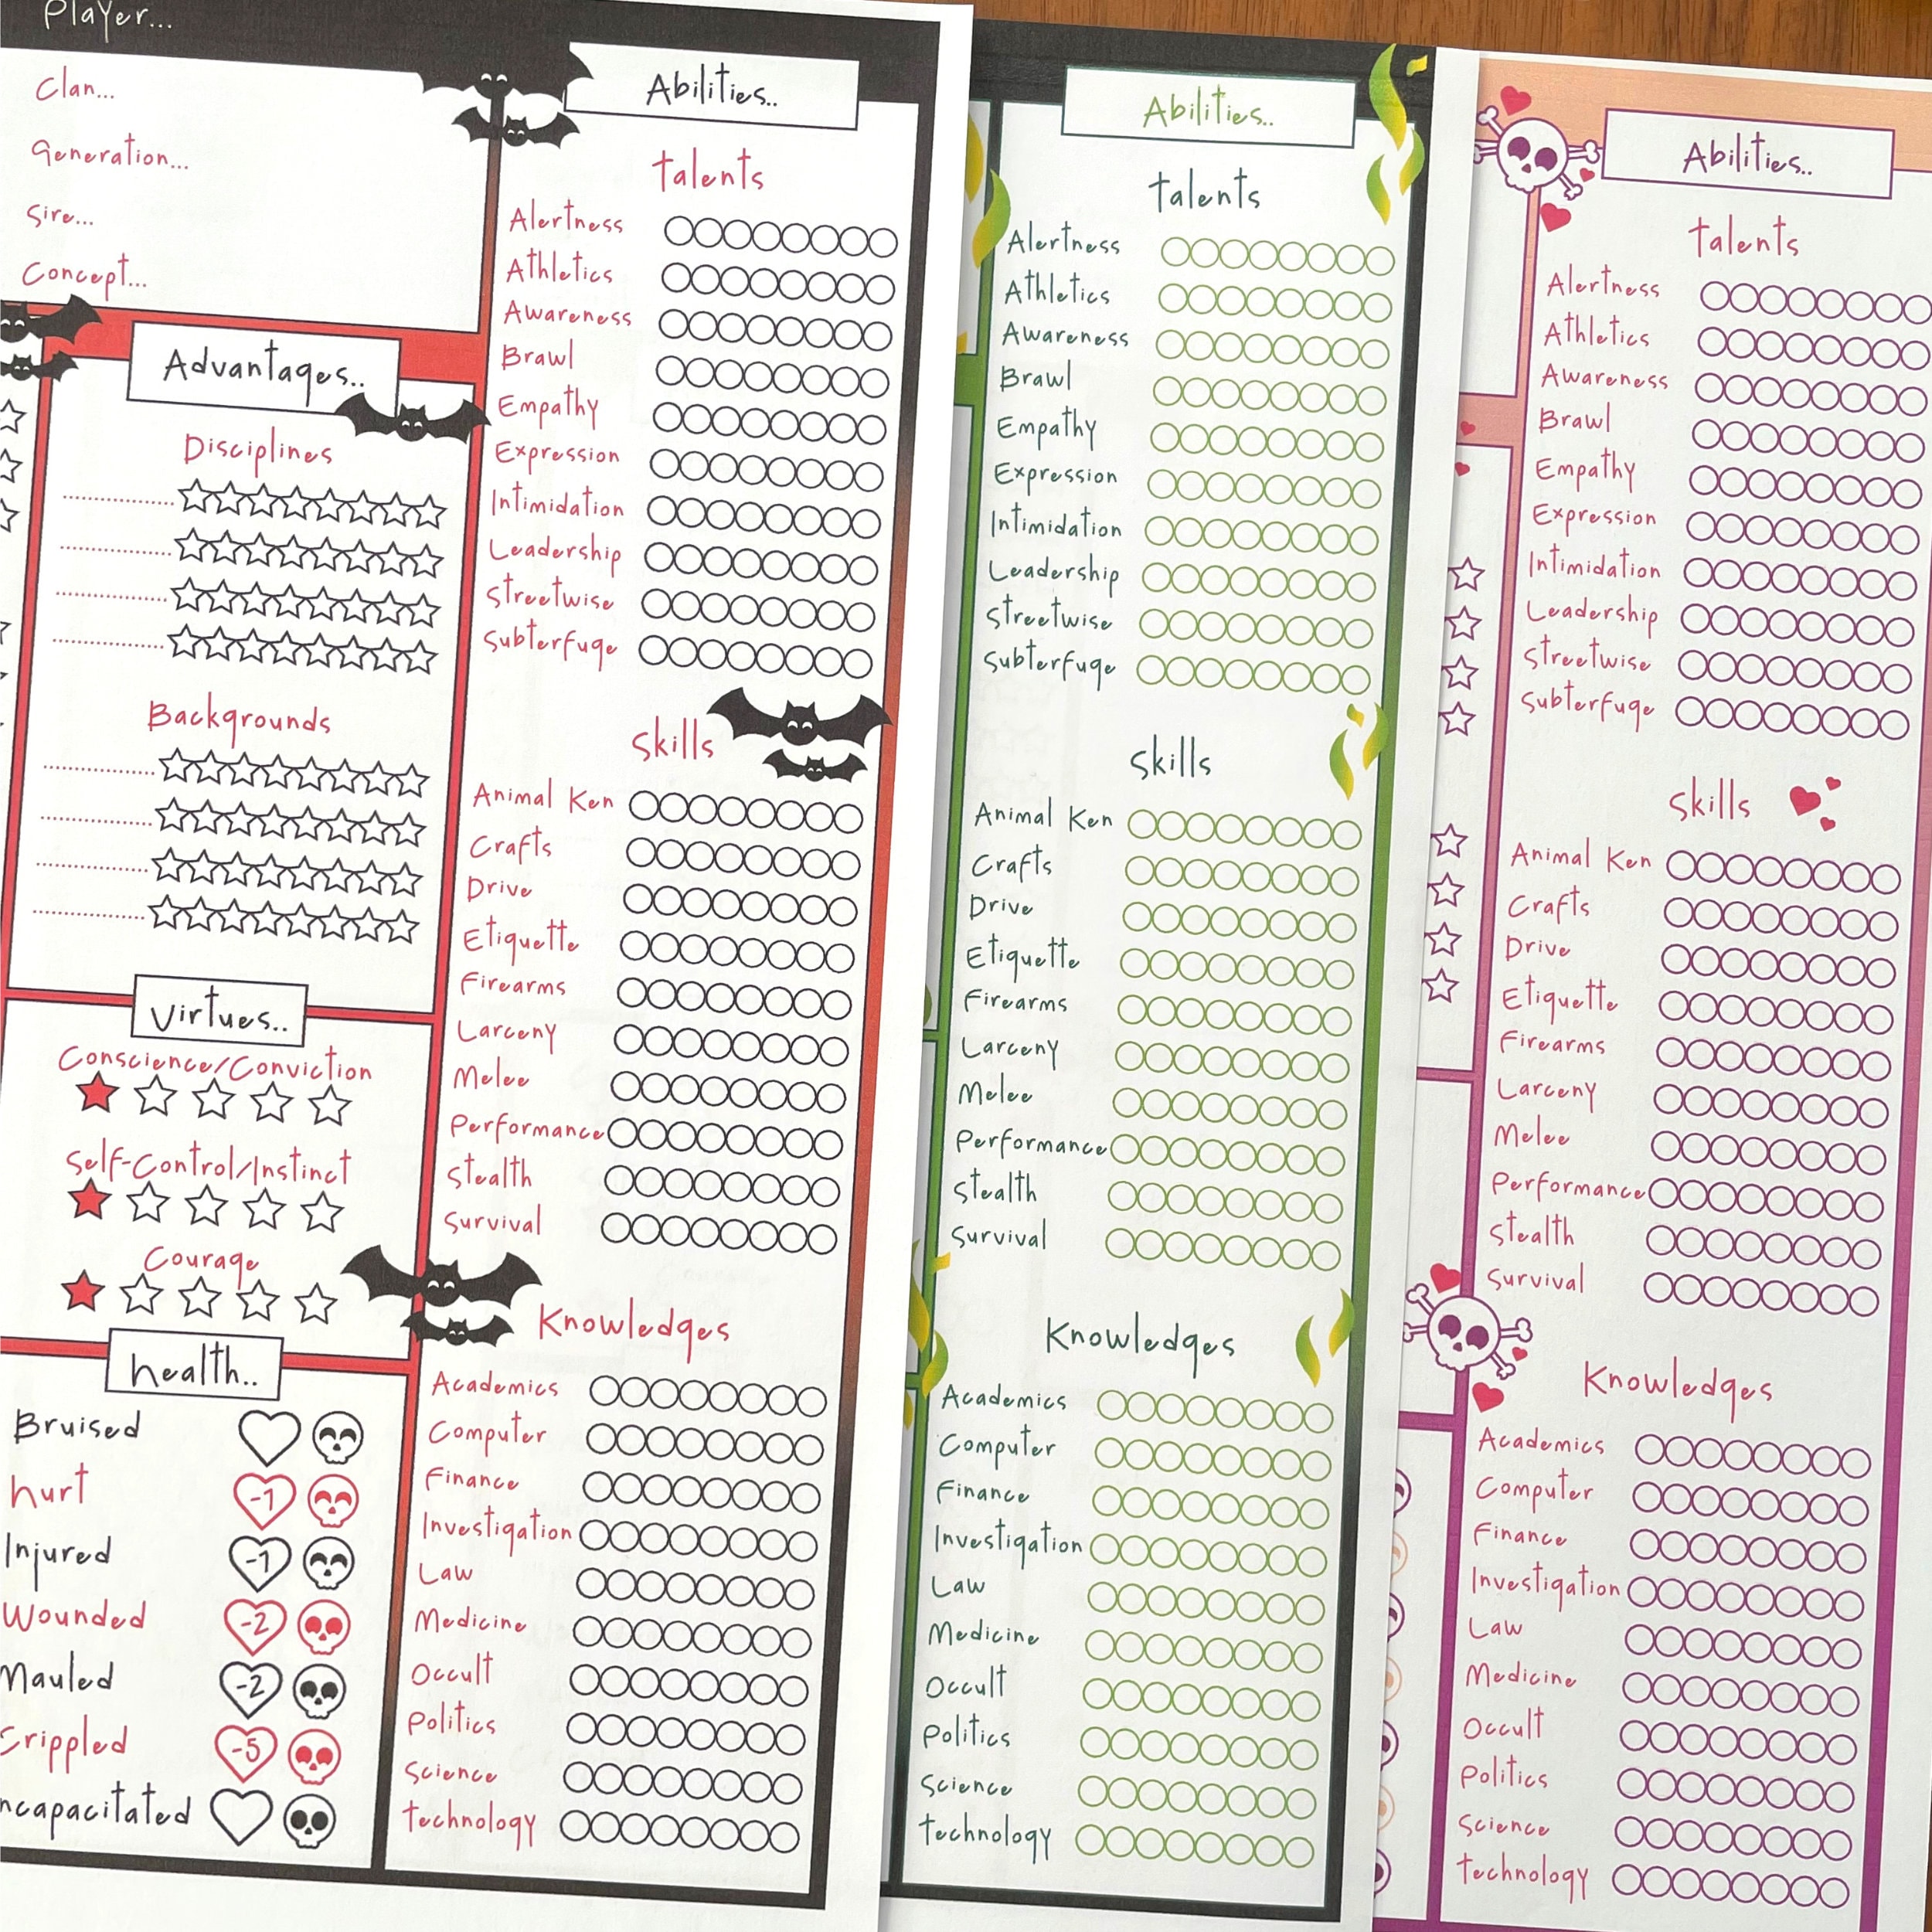 Player...
Clan...
Generation...
Sire...
Concept...
Advantages..
Disciplines
Backgrounds
Virtues..
Conscience/Conviction
Self-Control/Instinct
Courage
Health..
Bruised
Hurt -1
Injured -1
Wounded -2
Mauled -2
Crippled -5
ncapacitated
Abilities..
Talents
Alertness
Athletics
Awareness
Brawl
Empathy
Expression
Intimidation
Leadership
Streetwise
Subterfuge
Skills
Animal Ken
Crafts
Drive
Etiquette
Firearms
Larceny
Melee
Performance
Stealth
Survival
Knowledges
Academics
Computer
Finance
Investigation
Law
Medicine
Occult
Politics
Science
Technology
Abilities..
Talents
Alertness
Athletics
Awareness
Brawl
Empathy
Expression
Intimidation
Leadership
Streetwise
Subterfuge
Skills
Animal Ken
Crafts
Drive
Etiquette
Firearms
Larceny
Melee
Performance
Stealth
Survival
Knowledges
Academics
Computer
Finance
Investigation
Law
Medicine
Occult
Politics
Science
Technology
Abilities..
Talents
Alertness
Athletics
Awareness
Brawl
Empathy
Expression
Intimidation
Leadership
Streetwise
Subterfuge
Skills
Animal Ken
Crafts
Drive
Etiquette
Firearms
Larceny
Melee
Performance
Stealth
Survival
Knowledges
Academics
Computer
Finance
Investigation
Law
Medicine
Occult
Politics
Science
Technology